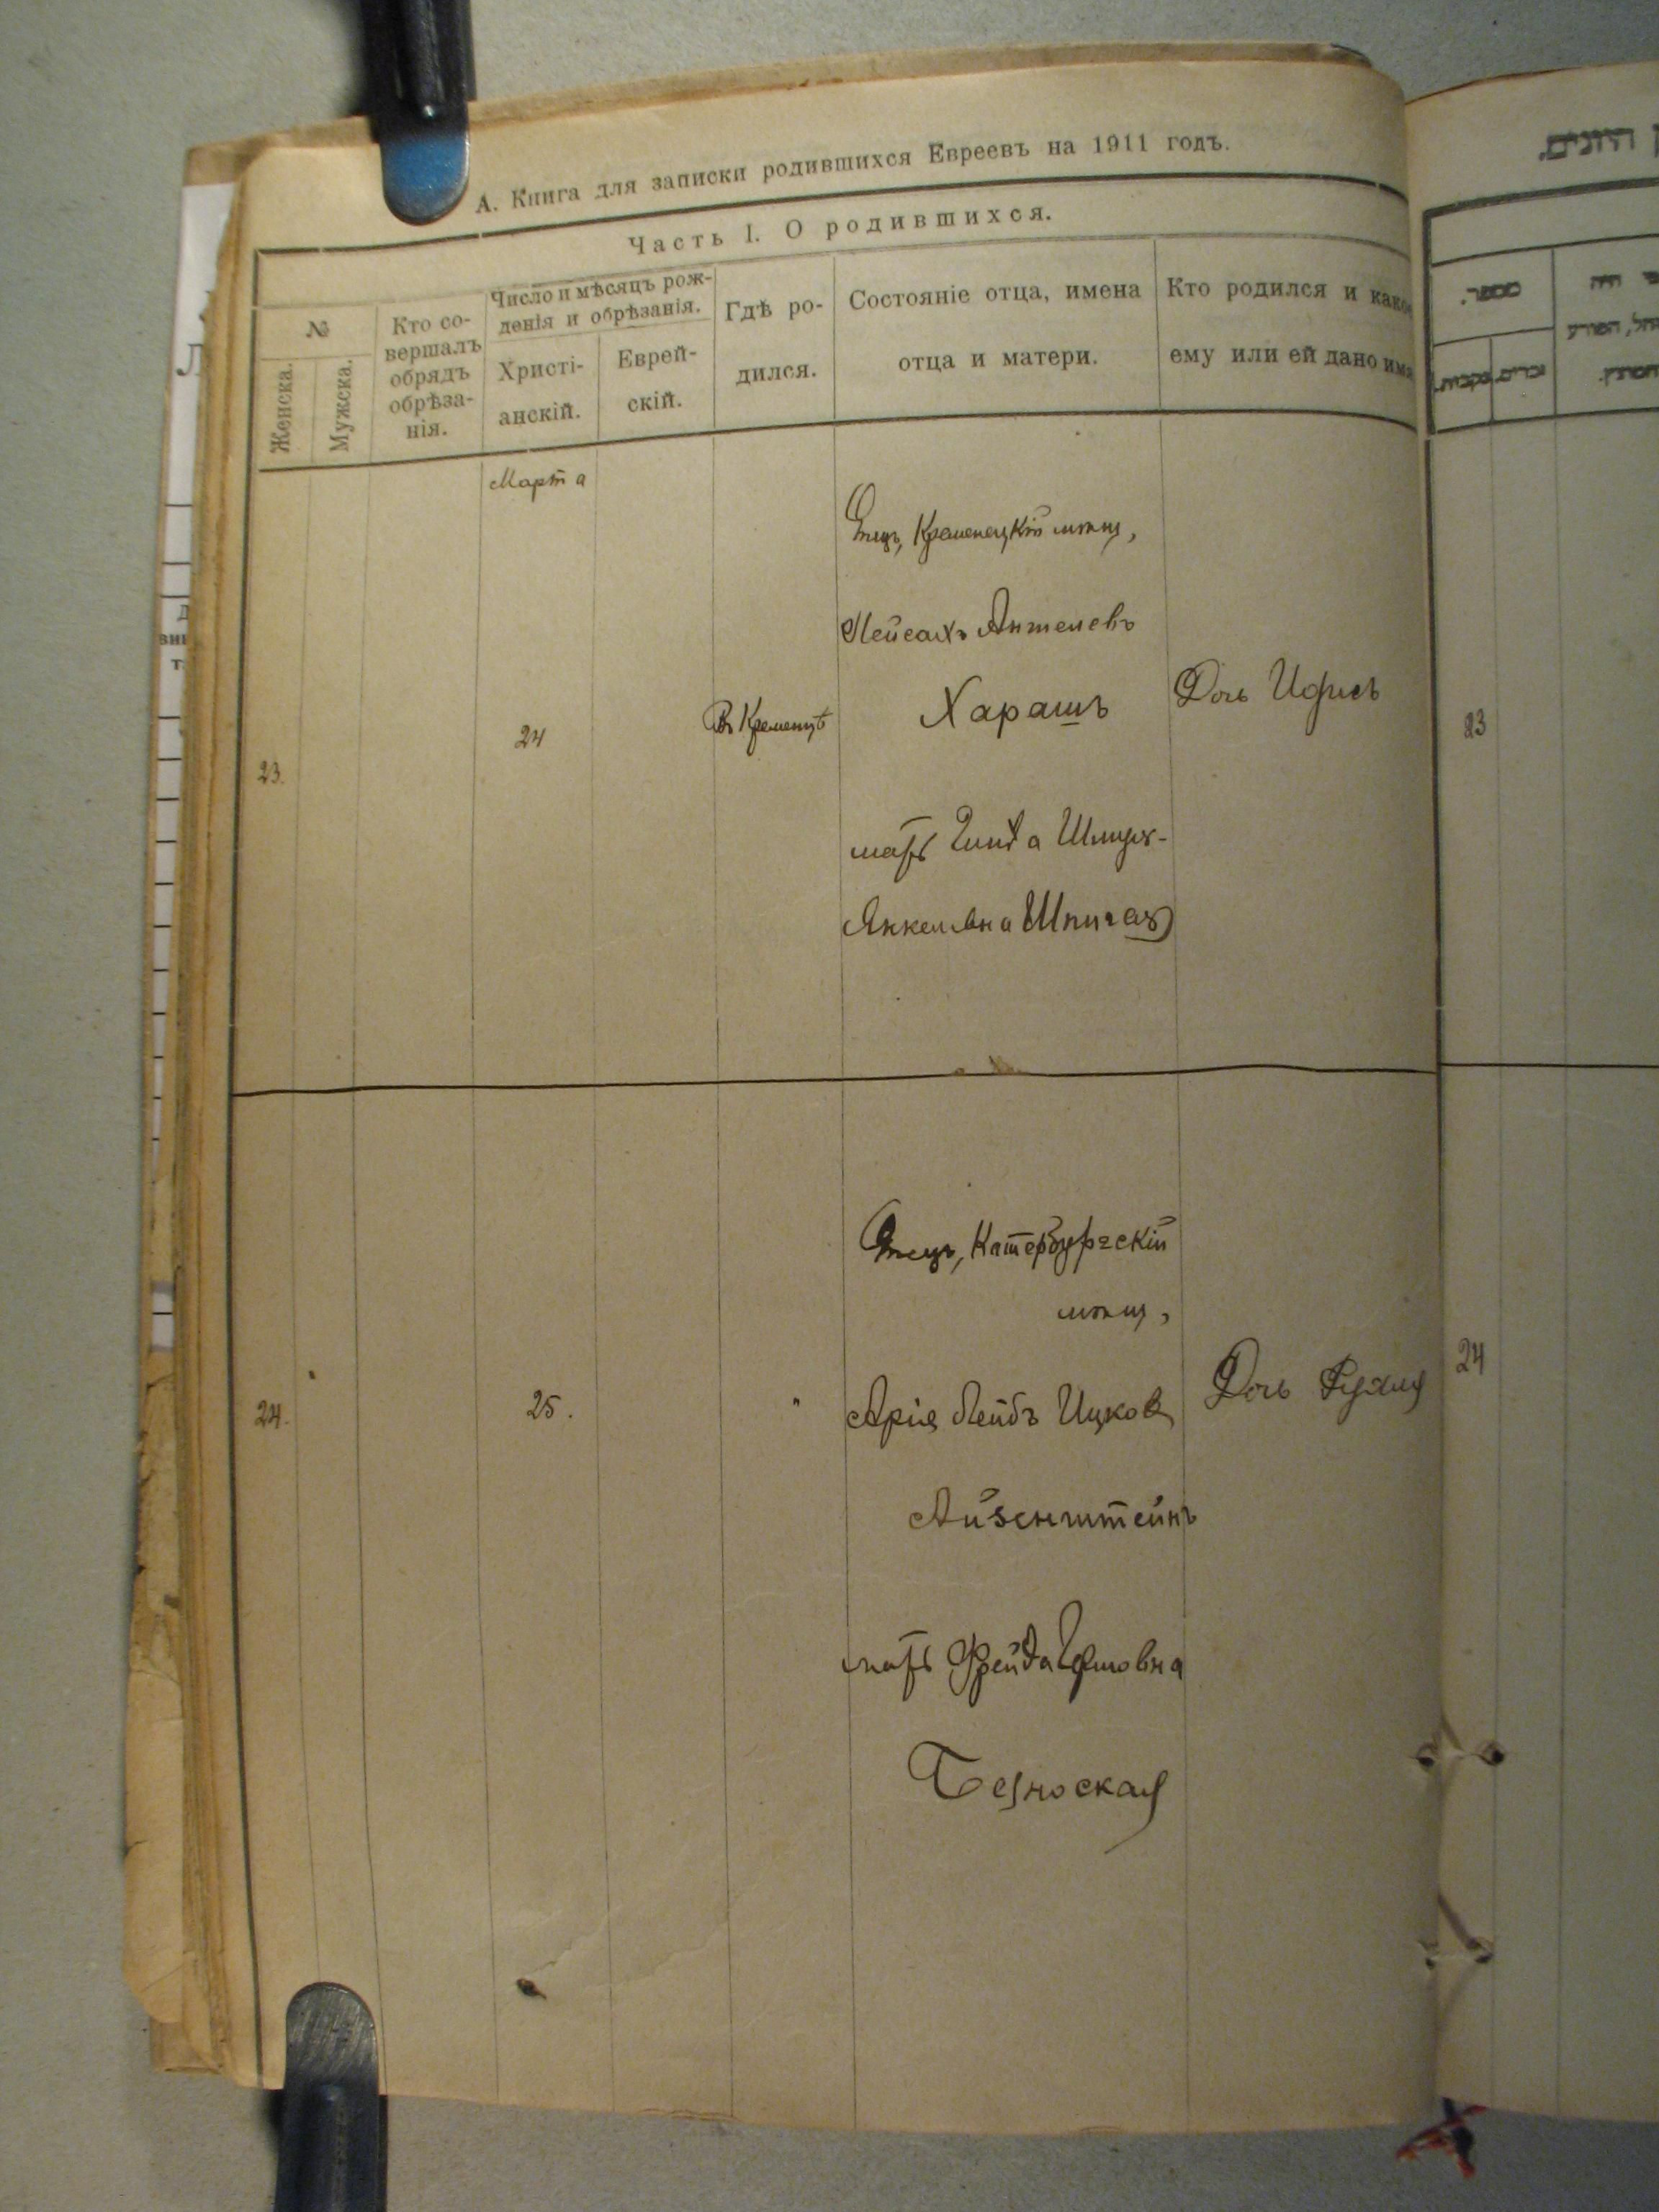 А. Книга для записки родившихся Евреевъ на 1911 годъ.
Часть I. О родившихся.
№
Женска.
Мужска.
Кто со-
вершалъ
обрядъ
обрѣза-
нія.
Число и мѣсяцъ рож-
денія и обрѣзанія.
Христі-
анскій.
Еврей-
скій.
Гдѣ ро-
дился.
Состояніе отца, имена
отца и матери.
Кто родился и како
ему или ей дано има
Марта
23.
24
Въ Кременцѣ
Отецъ, Кременецкій мѣщ,
Пейсахъ Аншелевъ
Харашъ
мать Гинда Шмуль-
Янкелевна Шпигаль
Дочь
24.
25.
"
Отецъ, Катербургскій
мѣщ,
Арія Лейбъ Ицков
Айзенштейнъ
мать Фрейда
Безноская
Дочь Рухлу
מספר.
זכרים.
נקבות.
23
24